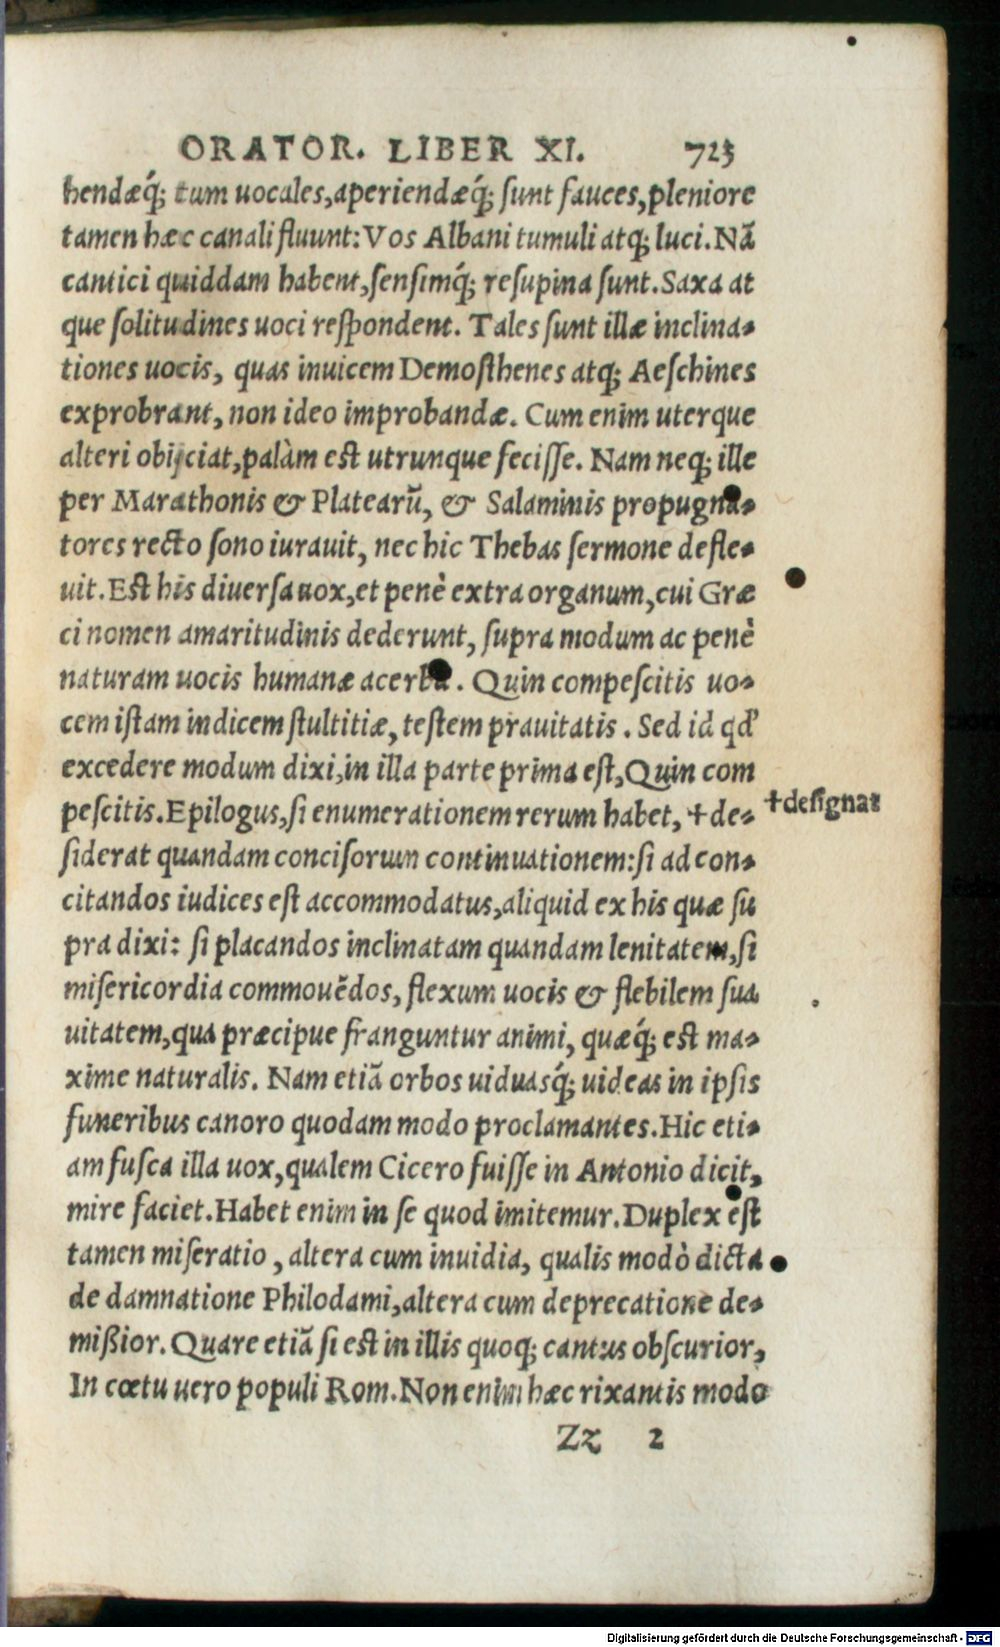 ORATOR. LIBER XI. 723
hendæq́; tum uocales,aperiendæq́; sunt fauces,pleniore
tamen hæc canali fluunt:Vos Albani tumuli atq; luci.Nã
cantici quiddam habent,sensimq́; resupina sunt.Saxa at
que solitudines uoci respondent. Tales sunt illæ inclina-
tiones uocis, quas inuicem Demosthenes atq; Aeschines
exprobrant, non ideo improbandæ. Cum enim uterque
alteri obijciat,palàm est utrunque fecisse. Nam neq; ille
per Marathonis & Platearũ, & Salaminis propugna-
tores recto sono iurauit, nec hic Thebas sermone defle-
uit.Est his diuersa uox,et penè extra organum,cui Græ
ci nomen amaritudinis dederunt, supra modum ac penè
naturam uocis humanæ acerba. Quin compescitis uo-
cem istam indicem stultitiæ, testem prauitatis. Sed id qd'
excedere modum dixi,in illa parte prima est,Quin com
pescitis.Epilogus,si enumerationem rerum habet, †de-
†designat
siderat quandam concisorum continuationem:si ad con-
citandos iudices est accommodatus,aliquid ex his quæ su
pra dixi: si placandos inclinatam quandam lenitatem,si
misericordia commouẽdos, flexum uocis & flebilem sua
uitatem,qua præcipue franguntur animi, quæq́; est ma-
xime naturalis. Nam etiã orbos uiduasq́; uideas in ipsis
funeribus canoro quodam modo proclamantes.Hic eti-
am fusca illa uox,qualem Cicero fuisse in Antonio dicit,
mire faciet.Habet enim in se quod imitemur.Duplex est
tamen miseratio, altera cum inuidia, qualis modò dicta
de damnatione Philodami,altera cum deprecatione de-
mißior. Quare etiã si est in illis quoq; cantus obscurior,
In cœtu uero populi Rom.Non enim hæc rixantis modo
Zz 2
Digitalisierung gefördert durch die Deutsche Forschungsgemeinschaft - DFG